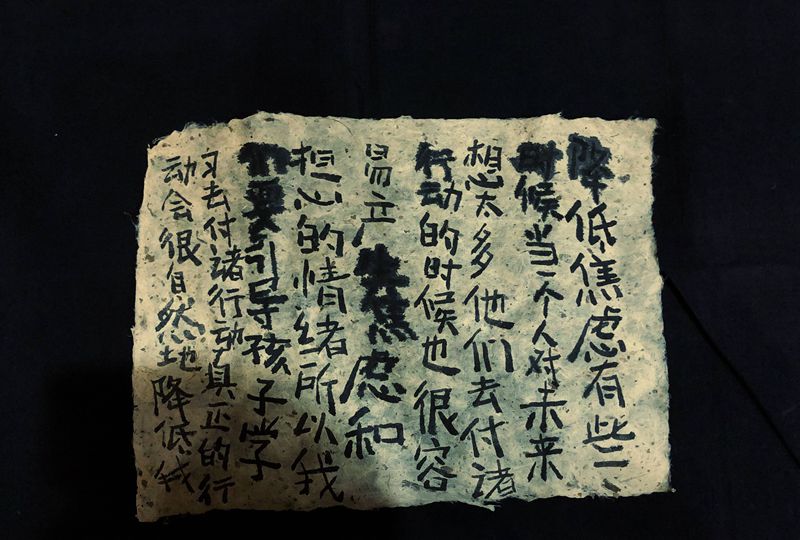 降低焦虑有些
时候当一个人对未来
想太多他们去付诸
行动的时候也很容
易产生焦虑和
担心的情绪所以我
们要引导孩子学
习去付诸行动真正的行
动会很自然地降低我